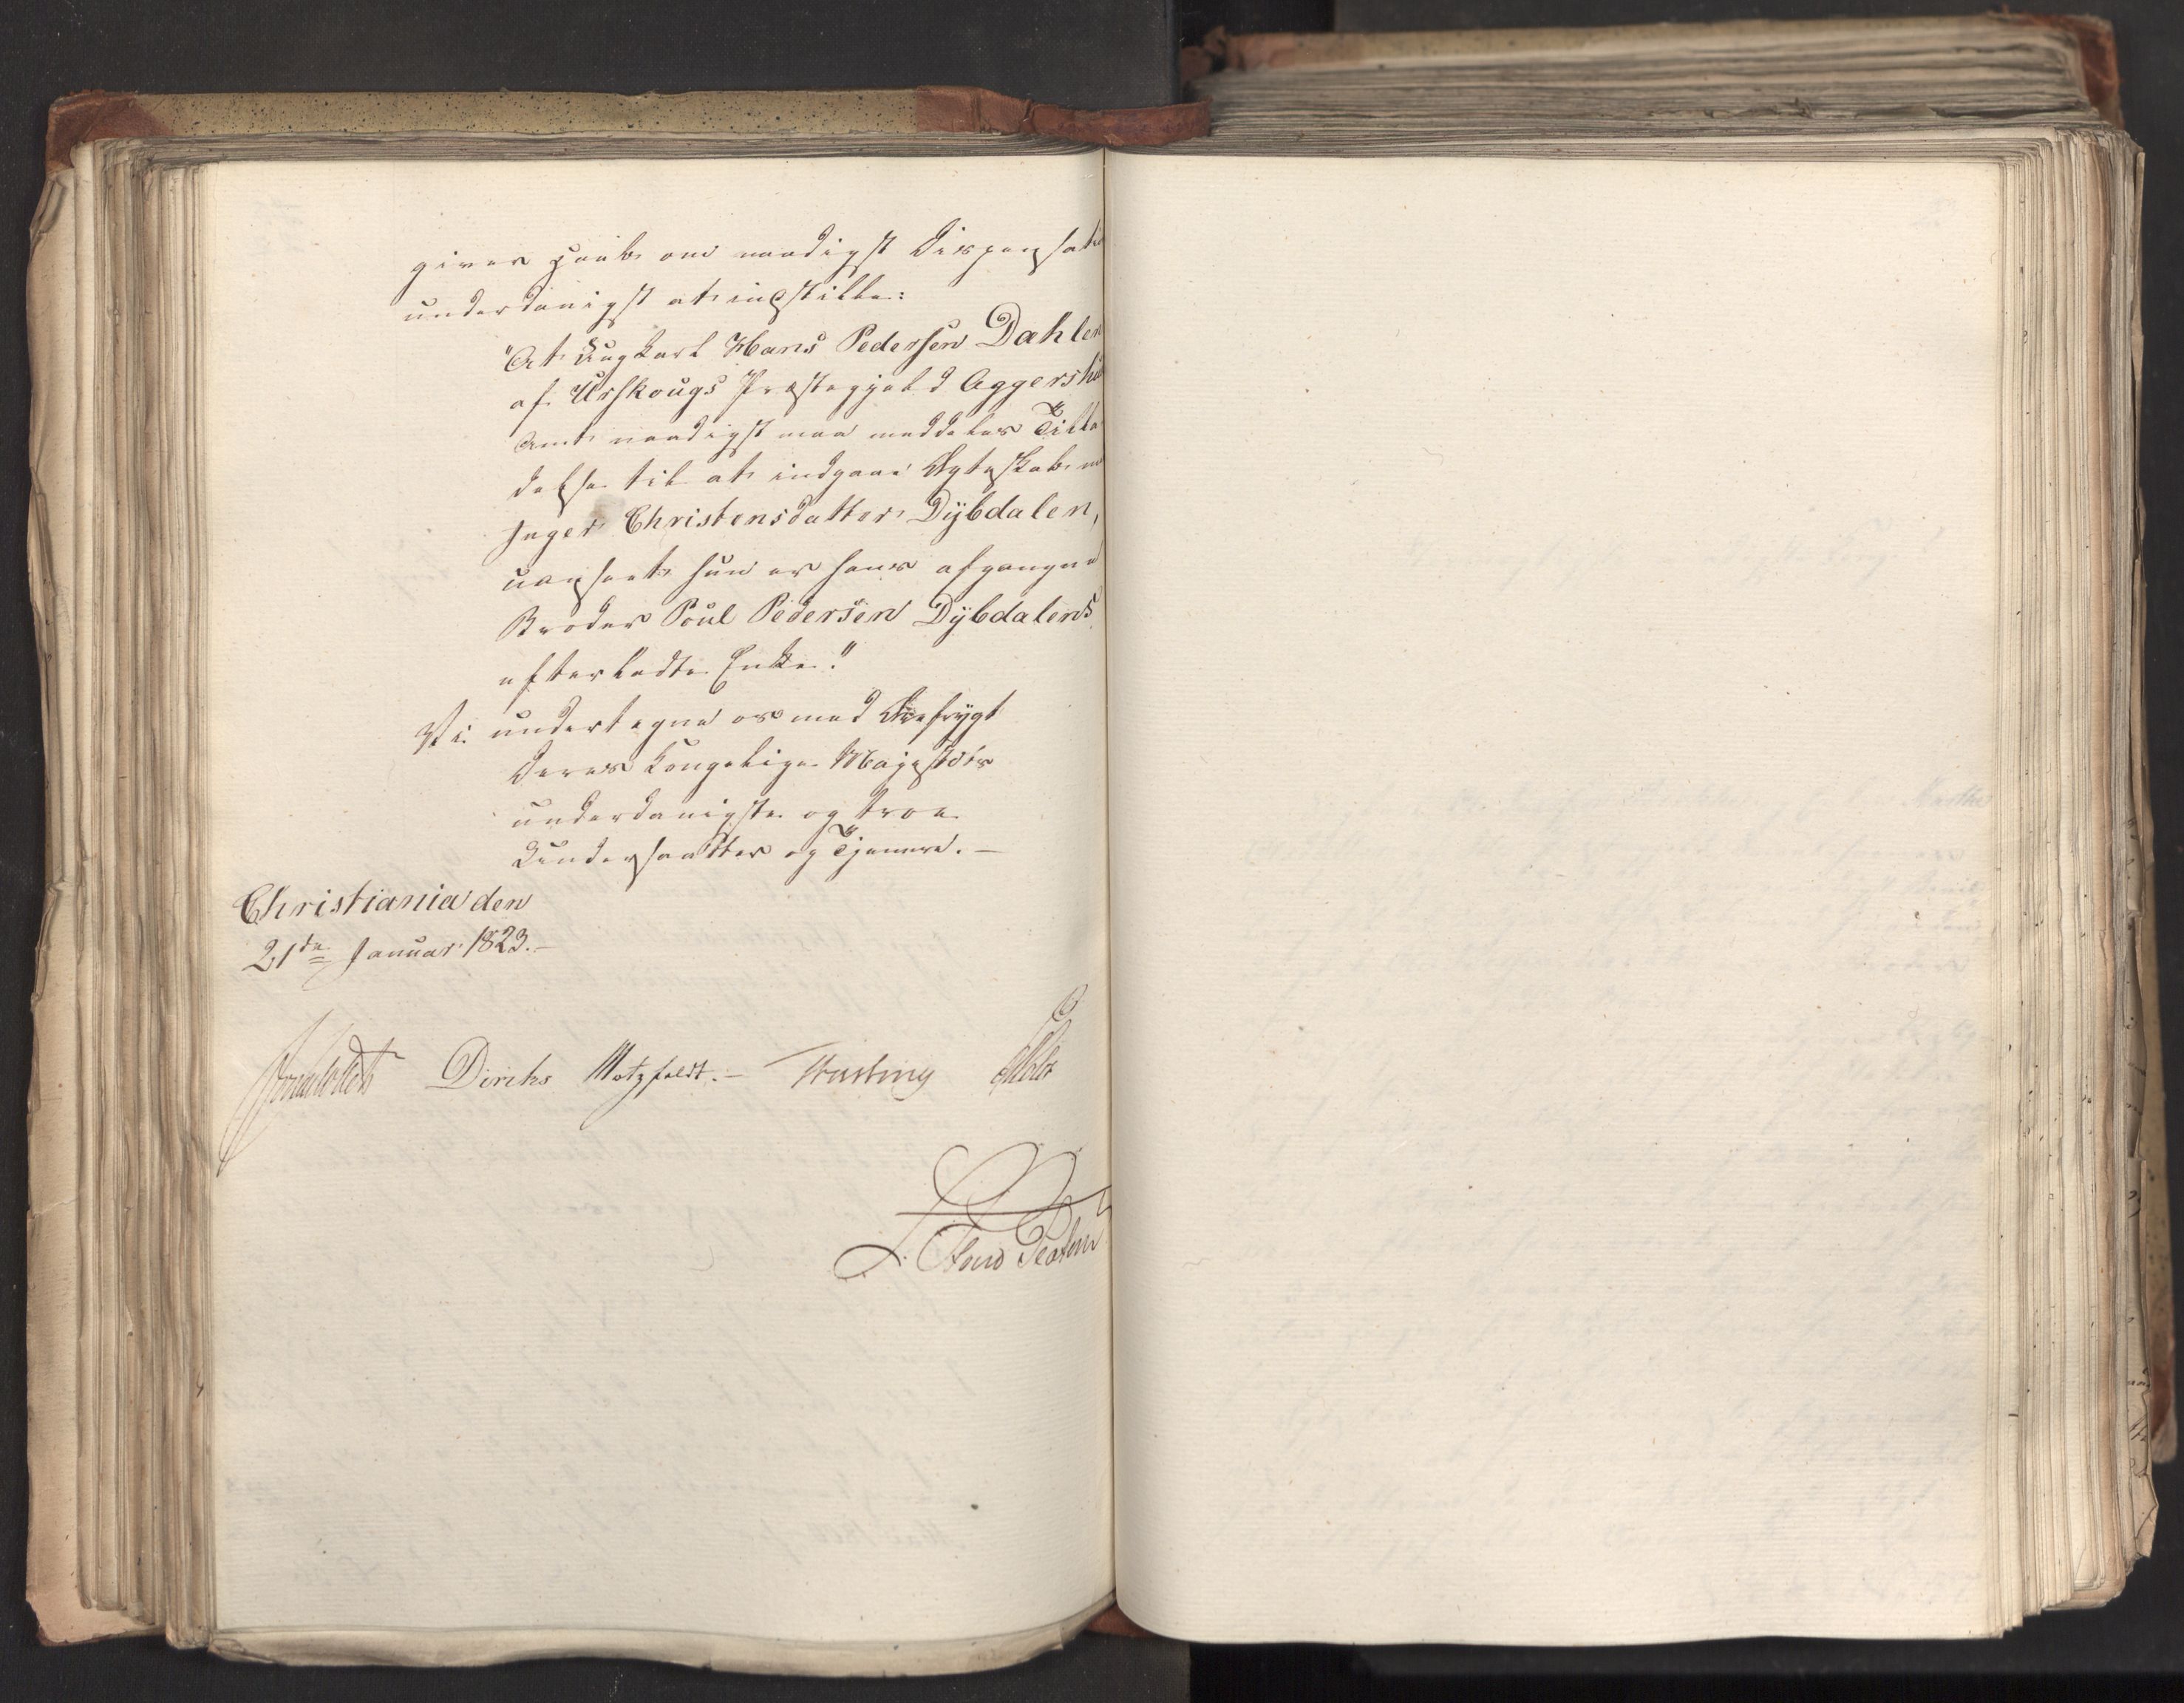 giver paab om naadigst Dispensati
underdanigst at indstille:
"At Ungkarl Hans Pedersen Dahlen
af Urskougs Præstegjeld Aggershu
Amt naadigst maa meddeles Tilla
delse til at indgaae Ægteskab m
Inger Christensdatter Dÿbdalen,
uanseet hun er hans afgangne
Broder Poul Pedersen Dÿbdalens
efterladte Enke."
Vi undertegne os med Ærefrygt
Deres Kongelige Majestæts
underdanigste og troe
Undersaatter og Tjenere.—
Christiania den
21de Januar 1823.—
Diriks Motzfeldt.— Krefting